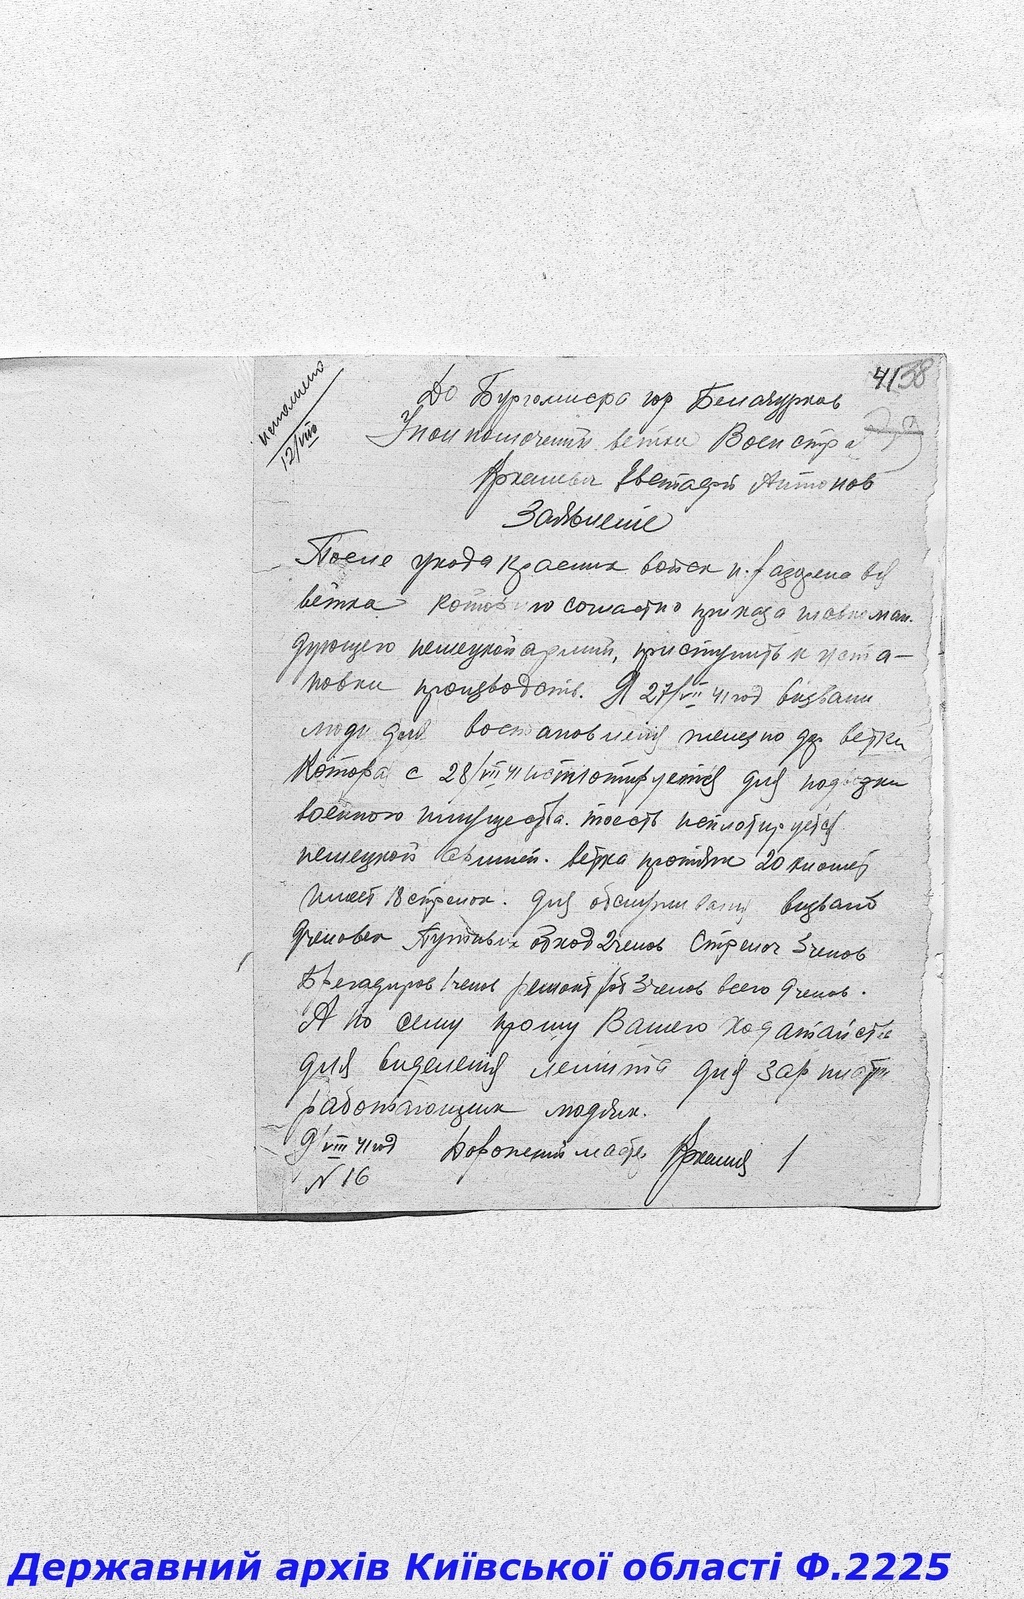 исполнено
12/VIII
41 38
До Бургомистра гор Белацерков
ветки Военстра
Евстафи Антонов
Заявление
После ухода Красних войск и. разорена вся
ветка которую согластно приказа главноман.
дующего немецкой армий, приступить к уста-
новки производств. Я 27/VII 41 год визвали
люди для востановления железно др ветки
Котора с 28/VII 41 для подвозки
военного имущества. тоесть
немецкой армией. ветка протяж 20 километ
имеет 18 стрелок. для обслуживания визвано
9 человек Путевых обход 2 челов Стрелоч 3 челов
Бregадиров 1 челов ремонт раб 3 челов всего 9 челов.
А по сему прошу Вашего ходатайств
для виделения лемита для зарплати
работающих людям.
9/VIII 41 год Дорожний мастр
N 16
Державний архів Київської області Ф.2225